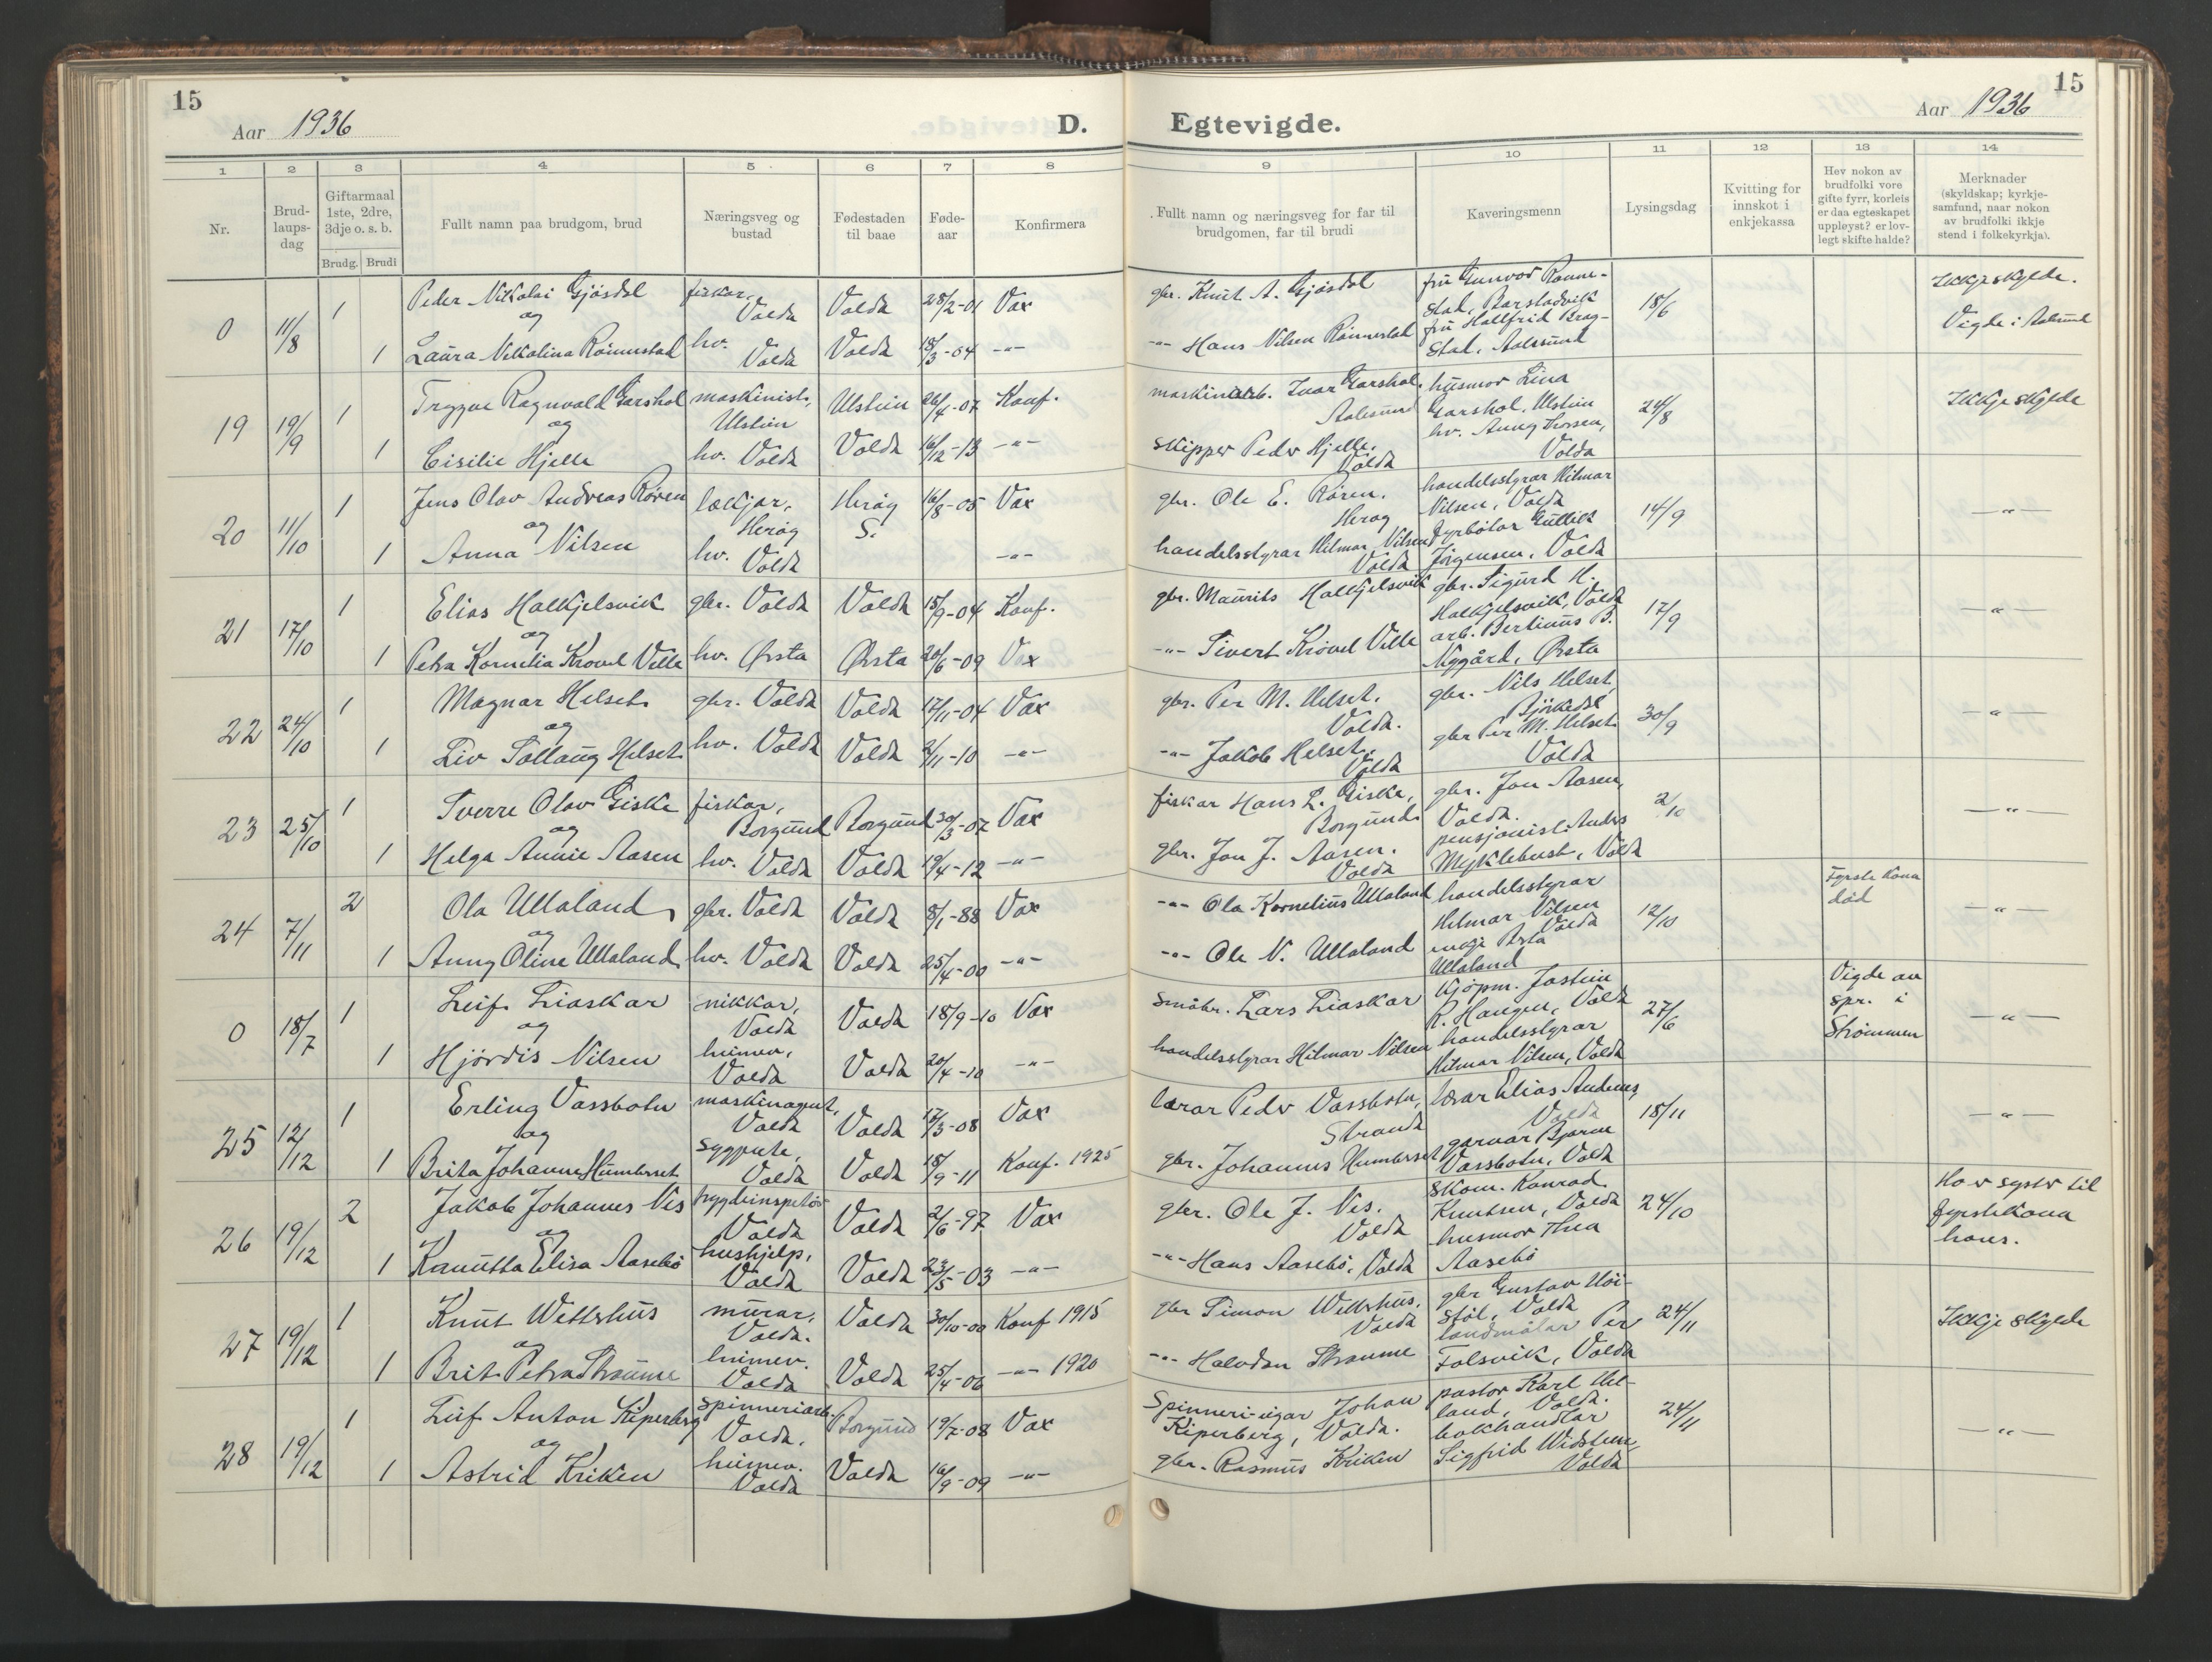 15
Aar 1936
D.
Egtevigde.
Aar 1936
15
1 2 3 4 5 6 7 8 9 10 11 12 13 14
Nr.
Brud-
laups-
dag
Giftarmaal
1ste, 2dre,
3dje o. s. b.
Brudg. Brudi
Fullt namn paa brudgom, brud
Næringsveg og
bustad
Fødestaden
til baae
Føde-
aar
Konfirmera
Fullt namn og næringsveg for far til
brudgomen, far til brudi
Kaveringsmenn
Lysingsdag
Kvitting for
innskot i
enkjekassa
Hev nokon av
brudfolki vore
gifte fyrr, korleis
er daa egteskapet
uppløyst? er lov-
legt skifte halde?
Merknader
(skyldskap; kyrkje-
samfund, naar nokon
av brudfolki ikkje
stend i folkekyrkja).
0 11/8 1 Peder Nikolai Gjösdal fiskar, Volda Volda 28/2-01 Vax gbr. Knut A. Gjösdal fru Gunvor Rønne-
stad, Barstadvik 18/6 Ikkje skylde.
og
1 Laura Nikolina Rönnestad hv. Volda Volda 18/3-04 -"- -"- Hans Nilsen Rönnestad fru Hallfrid Brag-
stad, Aalesund Vigde i Aalesund
19 19/9 1 Trygve Ragnvald Garshol maskinist, Ulstein Ulstein 26/4-07 Konf. maskinarb. Ivar Garshol, Aalesund husmor Lina
Garshol, Ulstein 24/8 Ikkje skylde
og
1 Cisilie Hjelle hv. Volda Volda 16/12-13 -"- skipper Peder Hjelle, Volda hv. Anny Thorsen,
Volda
20 11/10 1 Jens Olav Andreas Røren lækjar, Herøy Herøy S. 16/8-05 Vax gbr. Ole E. Røren. Herøy handelsstyrar Hilmar
Nilsen, Volda 14/9 -"-
og
1 Anna Nilsen hv. Volda -"- handelsstyrar Hilmar Nilsen Volda fyrbøtar Gullik
Jörgensen, Volda
21 17/10 1 Elias Halkjelsvik gbr. Volda Volda 15/9-04 Konf. gbr. Maurits Halkjelsvik gbr. Sigurd H.
Halkjelsvik, Volda 17/9 -"-
og
1 Petra Kornelia Krovel Velle hv. Ørsta Ørsta 20/6-09 Vax -"- Sivert Krövel Velle arb. Bertinus B.
Nygård, Ørsta
22 24/10 1 Magnar Helset gbr. Volda Volda 17/11-04 Vax gbr. Per M. Helset, Volda. gbr. Nils Helset,
Björkedal 30/9 -"-
og
1 Liv Sollaug Helset hv. Volda Volda 2/11-10 -"- -"- Jakob Helset. Volda gbr Per M. Helset
Volda
23 25/10 1 Sverre Olav Giske fiskar, Borgund Borgund 30/3-07 Vax fiskar Hans L. Giske, Borgund gbr. Jon Aasen,
Volda. 2/10 -"-
og
1 Helga Annie Aasen hv. Volda Volda 19/4-12 -"- gbr. Jon J. Aasen. Volda pensjonist Anders
Myklebust, Volda
24 7/11 2 Ola Ullaland gbr. Volda Volda 8/1-88 Vax -"- Ola Kornelius Ullaland handelsstyrar
Hilmar Nilsen
Volda 12/10 Fyrste kona
død -"-
og
1 Anny Oline Ullaland hv. Volda Volda 25/4-00 -"- -"- Ole N. Ullaland Ullaland
0 18/7 1 Leif Liaskar nikkar, Volda Volda 18/9-10 Vax småbr. Lars Liaskar kjøpm. Jostein
R. Haugen, Volda 27/6 Vigde av
spr. i
Strömmen -"-
og
1 Hjördis Nilsen heimev, Volda Volda 20/4-10 -"- handelsstyrar Hilmar Nilsen handelsstyrar
Hilmar Nilsen, Volda
25 12/12 1 Erling Vassbotn maskinagent, Volda Volda 17/3-08 Vax lærar Peder Vassbotn, Stranda lærar Elias Andenes,
Volda 18/11 -"-
og
1 Brita Johanne Humberset sygpute, Volda Volda 18/9-11 Konf. 1925 gbr. Johannes Humberset garvar Bjarne
Vassbotn, Volda
26 19/12 2 Jakob Johannes Nes trygdeinspektør Volda Volda 2/6-97 Vax gbr. Ole J. Nes. Volda skom. Konrad
Knutsen, Volda 24/10 Ho er syster til
fyrstekona
hans.
og
1 Kanutta Elisa Aasebö hushjelp, Volda Volda 23/5-03 -"- -"- Hans Aasebö, Volda husmor Thea
Aasebö
27 19/12 1 Knut Wettshus murar, Volda. Volda 30/10-00 Konf 1915 gbr Simon Wettshus, Volda gbr Gustav Höi-
stöl, Volda 24/11 Ikkje skylde
og
1 Brit Petra Straume heimev. Volda Volda 25/4-06 -"- 1920 -"- Halvdan Straume landmålar Per
Folsvik, Volda
28 19/12 1 Leif Anton Kiperberg spinneriarb. Volda. Borgund 19/7-08 Vax Spinneri-eigar Johan
Kiperberg, Volda. pastor Karl Hel-
land, Volda. 24/11 -"-
og
1 Astrid Kriken heimev. Volda Volda 16/9-09 -"- gbr. Rasmus Kriken bokhandlar
Sigfrid Widsteen,
Volda